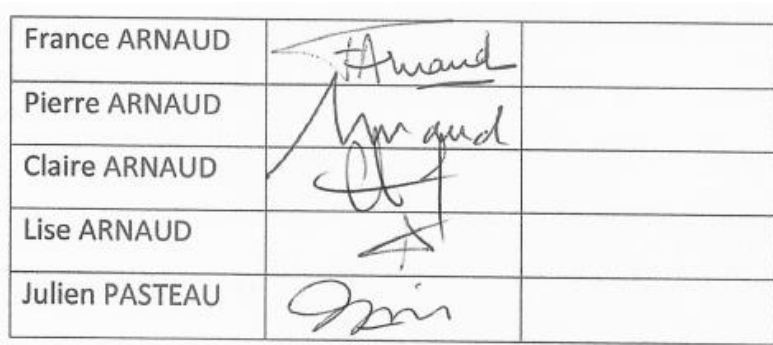 France ARNAUD FArnaud
Pierre ARNAUD Arnaud
Claire ARNAUD
Lise ARNAUD
Julien PASTEAU